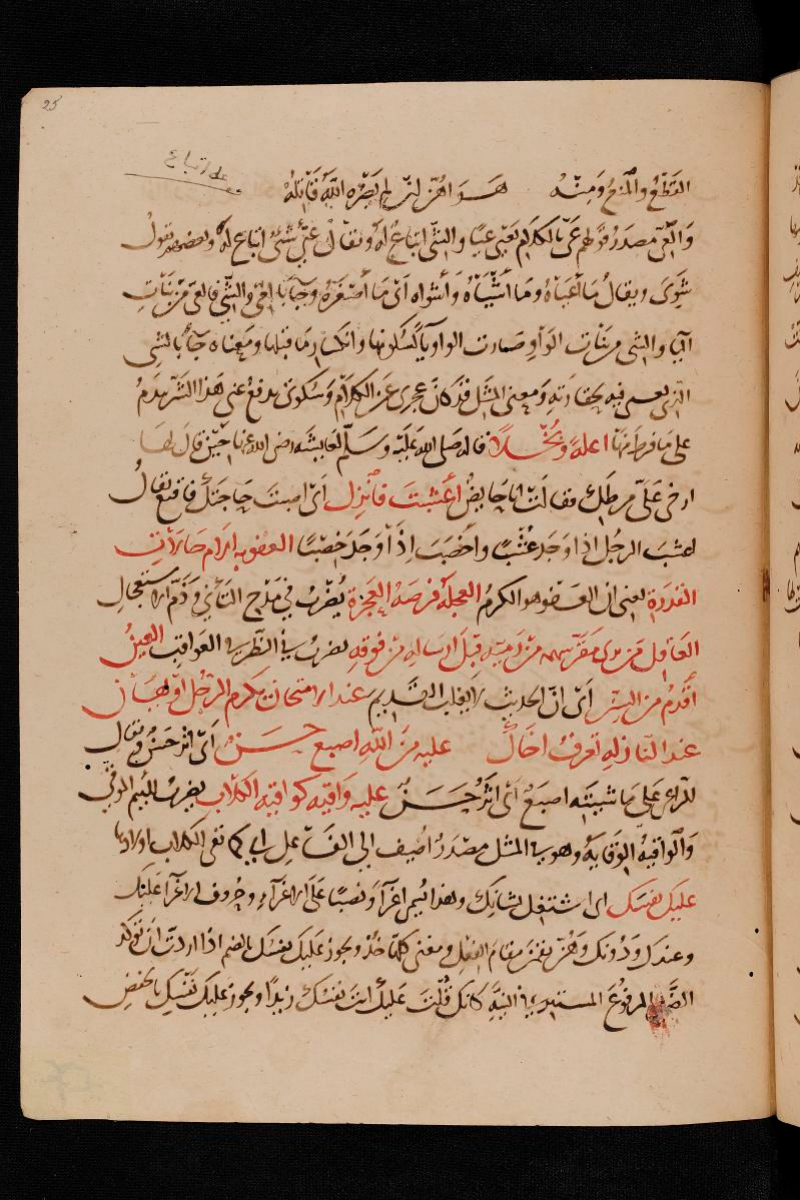 25
على اتباع
القطع والمنح ومنه هو اهزل لم يضره الله قاتله
والعي مصدر قولهم عي بالكلام يعيى عيا والشي اتباع له ويقال عيي شيي اتباع له وبعضهم يقول
شوى ويقال ما اعياه وما اشياه وأشواه أي ما أصغره وجا بالعي والشي فالعي من بنات
اليا والشي من بنات الواو صارت الواو يا لسكونها وانكسار ما قبلها ومعناه جا بالشي
الذي يعيى فيه لحقارته ومعنى المثل قد كان عجزي عن الكلام وسكوتي يدفع عني هذا الشر يندم
على ما فرط منه اعلة وبخلا قاله صلى الله عليه وسلم لعايشه رضي الله عنها حين قال لها
ارخي علي مرطك فقالت انا حايض أعشبت فانزل أي اصبت حاجتك فاقنع يقال
اعشب الرجل اذا وجد عشبا وأخصب اذا وجد خصبا العفو ابرام حالات
القدرة يعني ان العفو هو الكرم العجلة فرصة العجزة يضرب في مدح التأني وذم الاستعجال
العاقل من يرى مقر سهمه من رميته قبل ارساله من فوقه يضرب في النظر في العواقب العين
أقدم من السن أي ان الحديث لا يغلب القديم عند الامتحان يكرم الرجل او يهان
عند النازله تعرف اخاك عليه من الله اصبع حسن أي اثر حسن ويقال
للراعي على ماشيته اصبع أي اثر حسن عليه واقيه كواقيه الكلاب يضرب للئيم الموقى
والواقية الوقاية وهو في المثل مصدر أضيف الى الفاعل اي كما تقي الكلاب اولادها
عليك نفسك اى اشتغل بشانك وهذا يسمى اغراء ونصبا على الاغراء وحروف الاغرا عليك
وعندك ودونك وهن يقمن مقام الفعل ومعنى كلها خذ ويجوز عليك نفسك بالضم اذا اردت ان توكد
الضمير المرفوع المستتر في النية كانك قلت عليك انت نفسك زيدا ويجوز عليك نفسك بالخفض